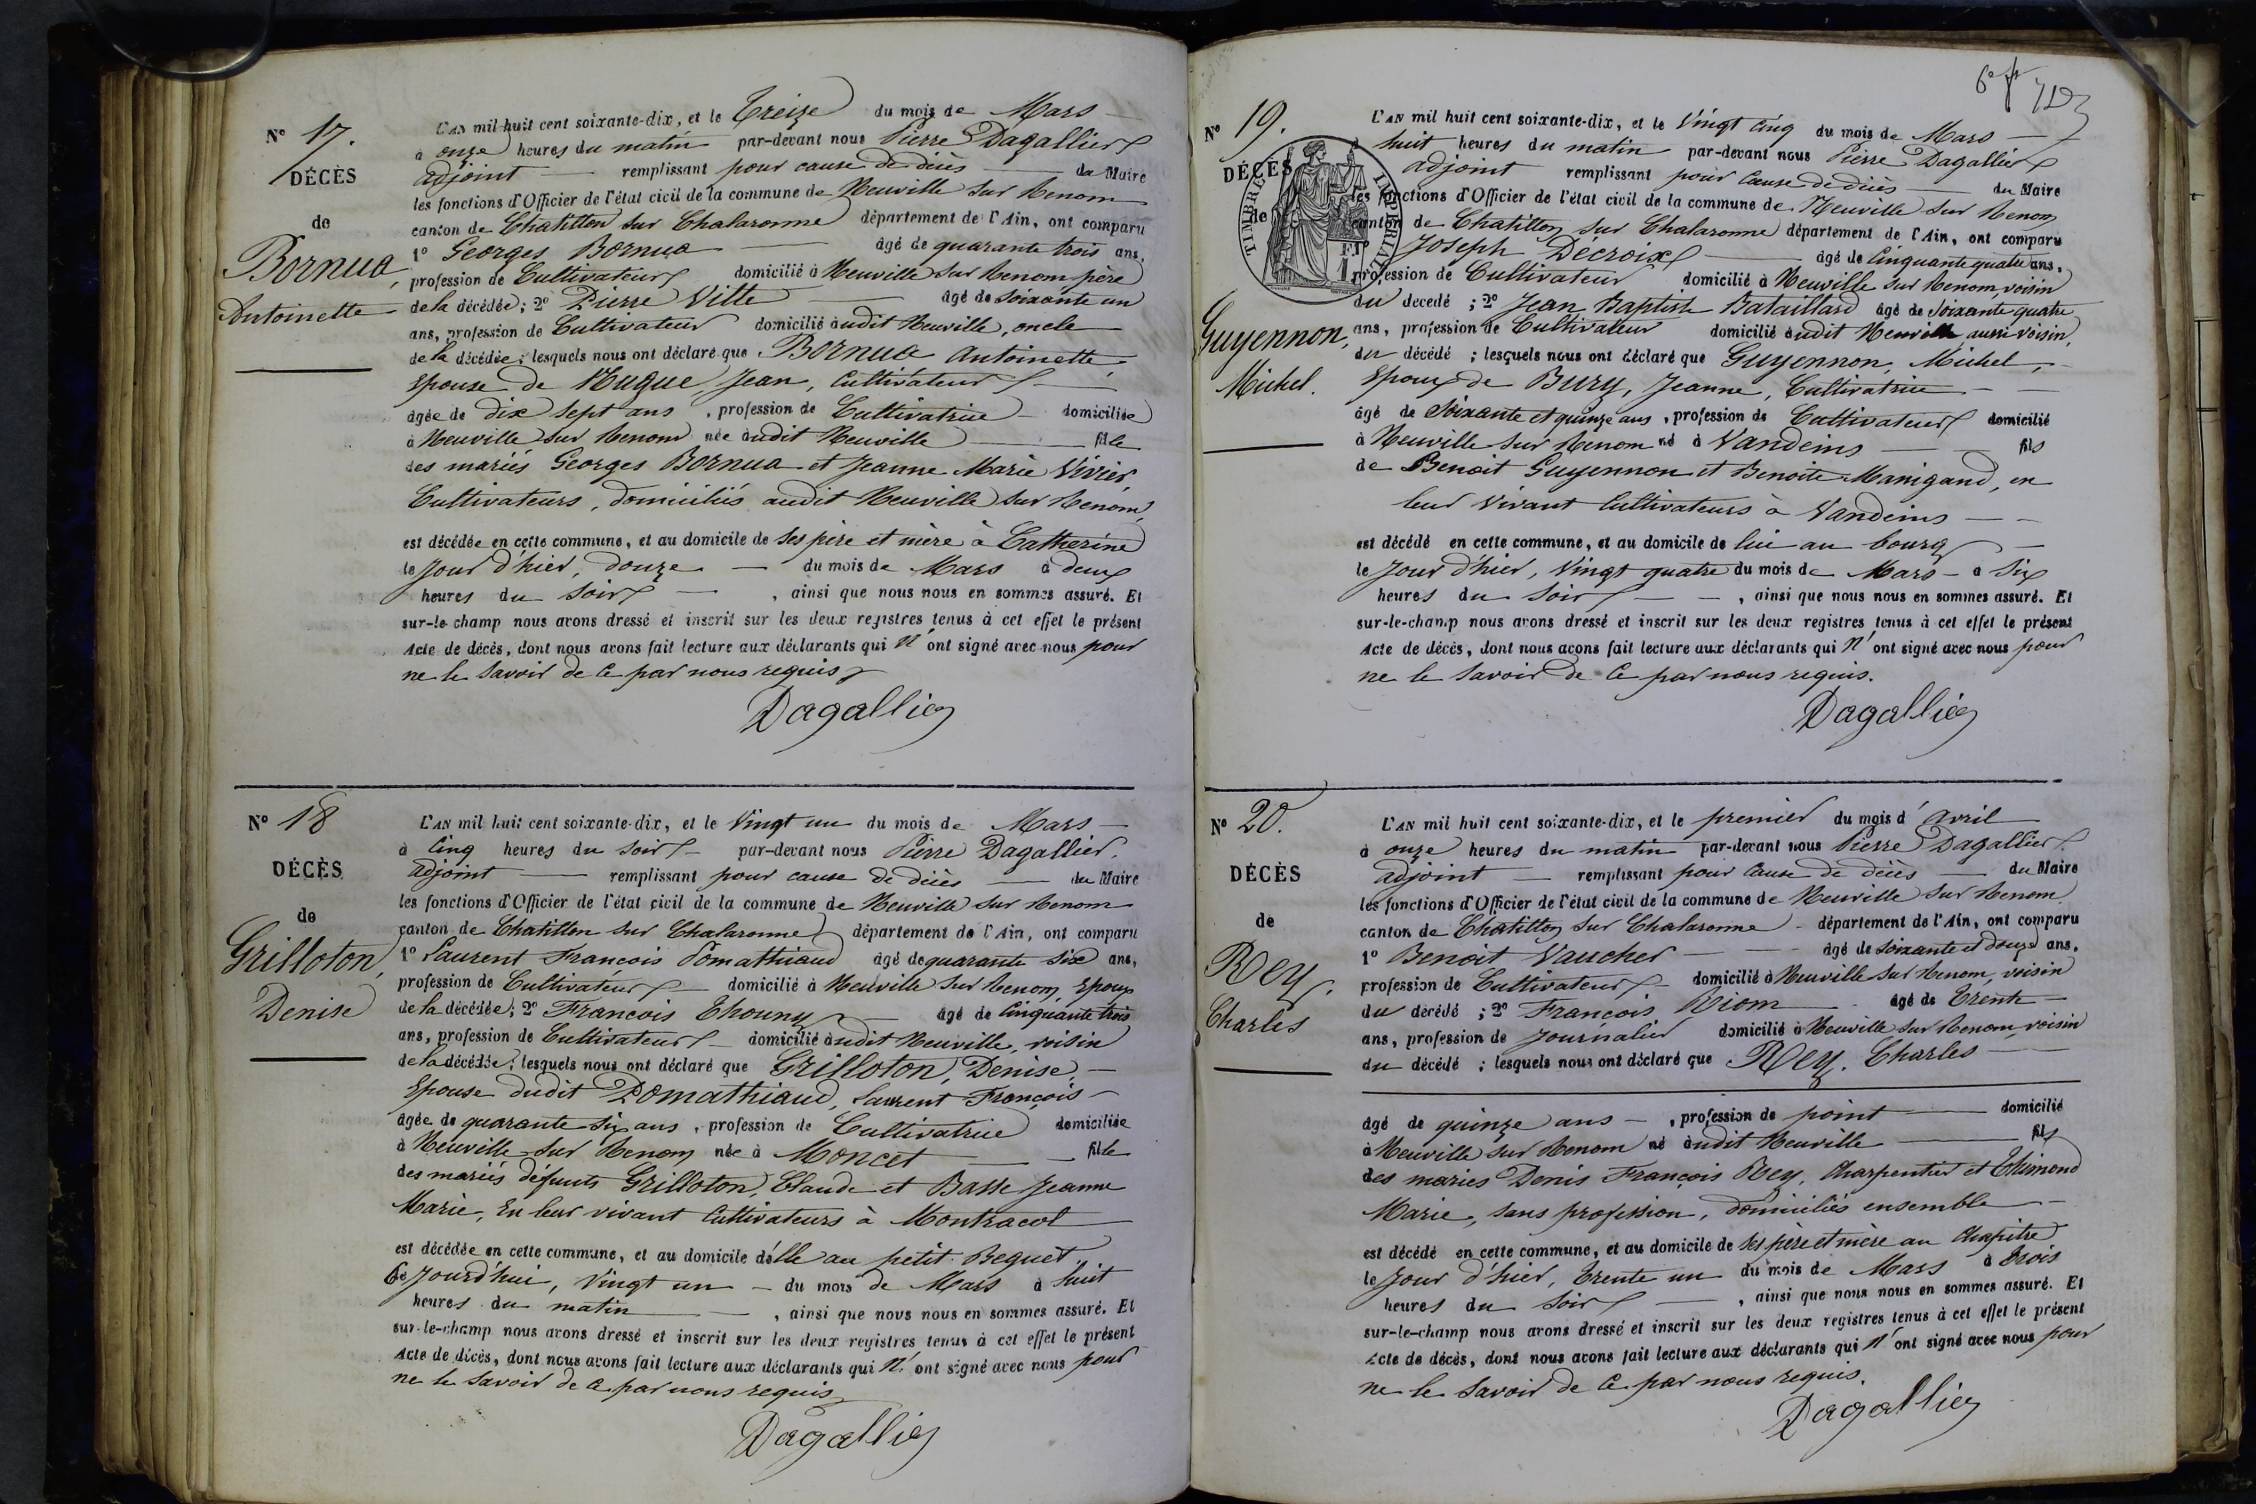 N° 17.
DÉCÈS
de
Bornua,
Antoinette
L'AN mil huit cent soixante-dix, et le Treize du mois de Mars
à onze heures du matin par-devant nous Pierre Dagallier
adjoint remplissant pour cause de décès du Maire
les fonctions d'Officier de l'état civil de la commune de Neuville sur Renom
canton de Chatillon sur Chalaronne département de l'Ain, ont comparu
1° Georges Bornua âgé de quarante trois ans,
profession de Cultivateur domicilié à Neuville sur Renom père
de la décédée; 2° Pierre Vitte âgé de soixante un
ans, profession de Cultivateur domicilié audit Neuville, oncle
de la décédée; lesquels nous ont déclaré que Bornua Antoinette
Epouse de Nugue Jean, Cultivateur
âgée de dix sept ans, profession de Cultivatrice domiciliée
à Neuville sur Renom née audit Neuville fille
des mariés Georges Bornua et Jeanne Marie Vivier
Cultivateurs, domiciliés audit Neuville sur Renom,
est décédée en cette commune, et au domicile de ses père et mère à Catherine
le Jour d'hier, douze du mois de Mars à deux
heures du soir, ainsi que nous nous en sommes assuré. Et
sur-le-champ nous avons dressé et inscrit sur les deux registres tenus à cet effet le présent
Acte de décès, dont nous avons fait lecture aux déclarants qui n'ont signé avec nous pour
ne le savoir de ce par nous requis
Dagallier
N° 18
DÉCÈS
de
Grilloton,
Denise
L'AN mil huit cent soixante-dix, et le Vingt un du mois de Mars
à Cinq heures du soir par-devant nous Pierre Dagallier.
adjoint remplissant pour cause de décès du Maire
les fonctions d'Officier de l'état civil de la commune de Neuville sur Renom
canton de Chatillon sur Chalaronne département de l'Ain, ont comparu
1° Laurent François Pomathiaud âgé de quarante six ans,
profession de Cultivateur domicilié à Neuville sur Renom, Epoux
de la décédée; 2° François Thouny âgé de Cinquante trois
ans, profession de Cultivateur domicilié audit Neuville, voisin
de la décédée; lesquels nous ont déclaré que Grilloton, Denise
Epouse dudit Pomathiaud, Laurent François
âgée de quarante six ans, profession de Cultivatrice domiciliée
à Neuville sur Renom née à Moncet fille
des mariés défunts Grilloton, Claude et Basse Jeanne
Marie, En leur vivant Cultivateurs à Montracol
est décédée en cette commune, et au domicile d'elle au petit Bequet
Ce Jourd'hui, Vingt un du mois de Mars à huit
heures du matin, ainsi que nous nous en sommes assuré. Et
sur-le-champ nous avons dressé et inscrit sur les deux registres tenus à cet effet le présent
Acte de décès, dont nous avons fait lecture aux déclarants qui n'ont signé avec nous pour
ne le savoir de ce par nous requis
Dagallier
6e
N° 19.
DÉCÈS
de
TIMBRE IMPÉRIAL
1 Fr
Guyennon,
Michel.
L'AN mil huit cent soixante-dix, et le Vingt Cinq du mois de Mars
huit heures du matin par-devant nous Pierre Dagallier
adjoint remplissant pour Cause de décès du Maire
les fonctions d'Officier de l'état civil de la commune de Neuville sur Renom
canton de Chatillon sur Chalaronne département de l'Ain, ont comparu
Joseph Décroix âgé de Cinquante quatre ans,
profession de Cultivateur domicilié à Neuville sur Renom, voisin
du décédé; 2° Jean Baptiste Bataillard âgé de Soixante quatre
ans, profession de Cultivateur domicilié audit Neuville aussi voisin,
du décédé; lesquels nous ont déclaré que Guyennon, Michel,
Epoux de Bury, Jeanne, Cultivatrice
âgé de Soixante et quinze ans, profession de Cultivateur domicilié
à Neuville sur Renom né à Vandeins fils
de Benoit Guyennon et Benoite Manigand, en
leur vivant Cultivateurs à Vandeins
est décédé en cette commune, et au domicile de lui au bourg
le Jour d'hier, Vingt quatre du mois de Mars à Six
heures du soir, ainsi que nous nous en sommes assuré. Et
sur-le-champ nous avons dressé et inscrit sur les deux registres tenus à cet effet le présent
Acte de décès, dont nous avons fait lecture aux déclarants qui n'ont signé avec nous pour
ne le savoir de ce par nous requis.
Dagallier
N° 20.
DÉCÈS
de
Rey,
Charles
L'AN mil huit cent soixante-dix, et le premier du mois d'avril
à onze heures du matin par-devant nous Pierre Dagallier
adjoint remplissant pour Cause de décès du Maire
les fonctions d'Officier de l'état civil de la commune de Neuville sur Renom
canton de Chatillon sur Chalaronne département de l'Ain, ont comparu
1° Benoit Vaucher âgé de Soixante et douze ans,
profession de Cultivateur domicilié à Neuville sur Renom, voisin
du décédé; 2° François Riom âgé de Trente
ans, profession de Journalier domicilié à Neuville sur Renom, voisin
du décédé; lesquels nous ont déclaré que Rey, Charles
âgé de quinze ans, profession de point domicilié
à Neuville sur Renom né audit Neuville fils
des mariés Denis François Rey, Charpentier et Thimond
Marie, sans profession, domiciliés ensemble
est décédé en cette commune, et au domicile de ses père et mère au Chapitre
le Jour d'hier, Trente un du mois de Mars à Trois
heures du soir, ainsi que nous nous en sommes assuré. Et
sur-le-champ nous avons dressé et inscrit sur les deux registres tenus à cet effet le présent
Acte de décès, dont nous avons fait lecture aux déclarants qui n'ont signé avec nous pour
ne le savoir de ce par nous requis.
Dagallier